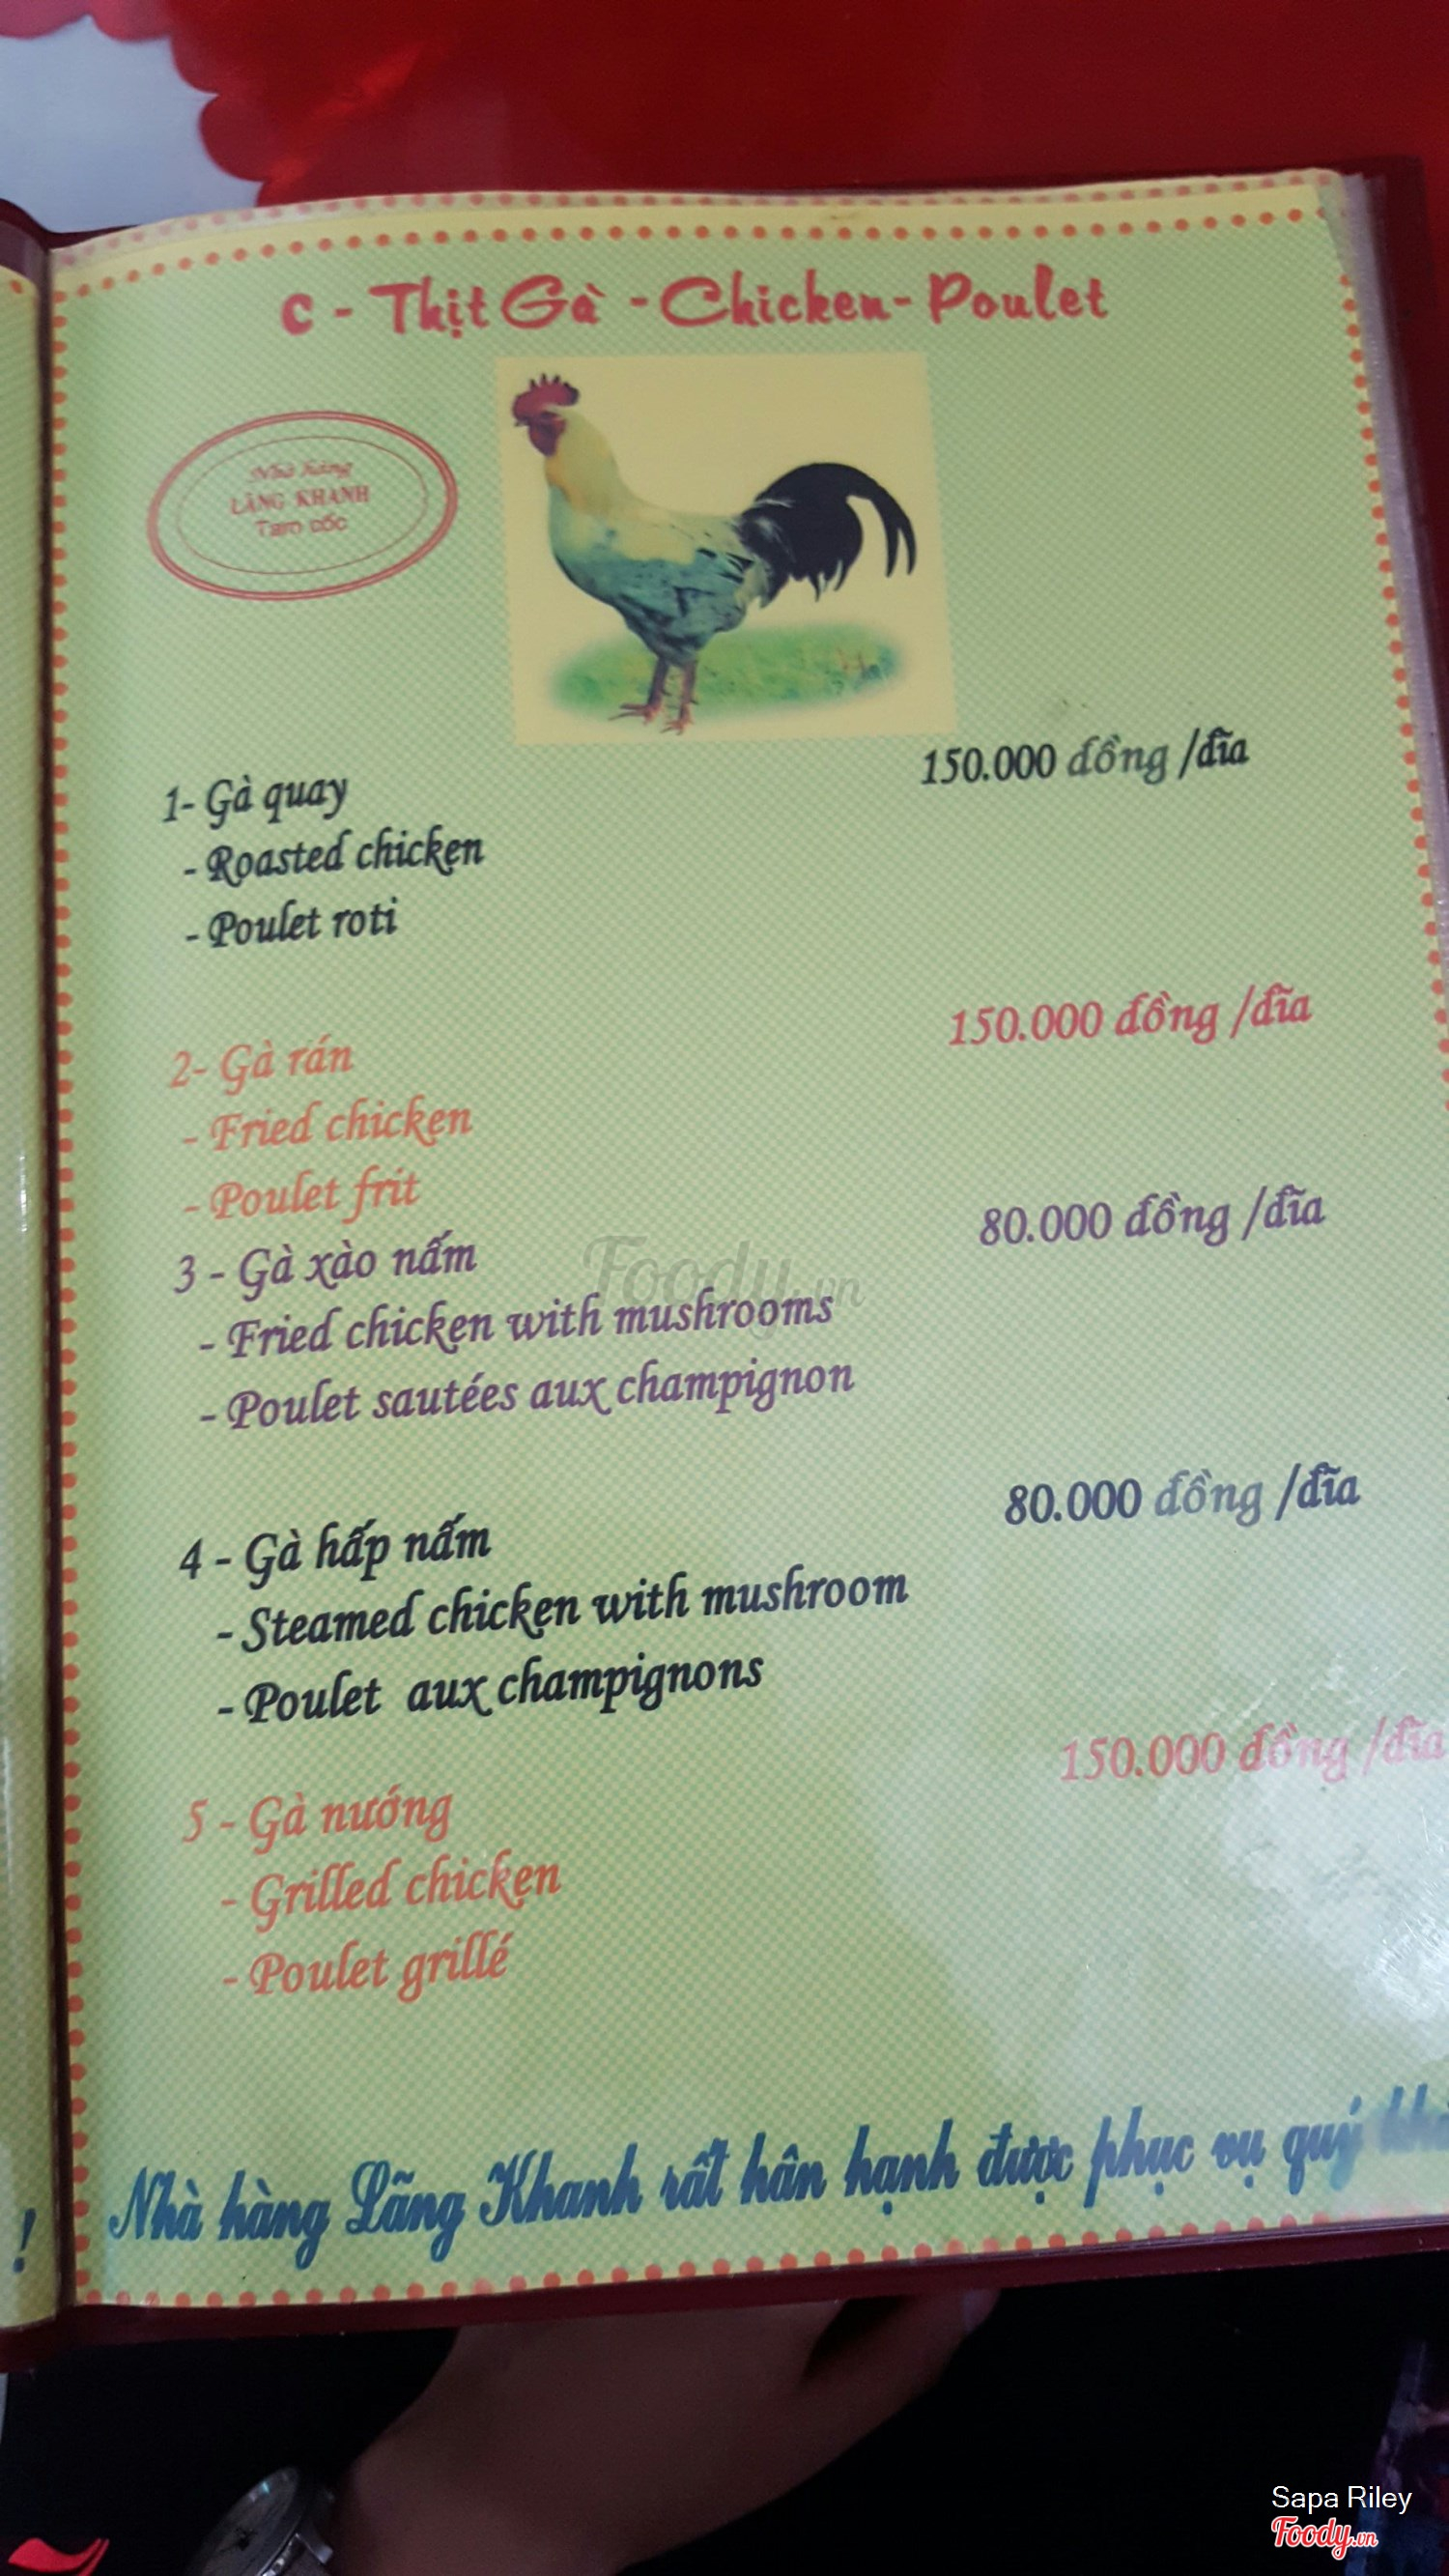 C - Thịt Gà - Chicken- Poulet
Nhà hàng
LÃNG KHANH
Tam cốc
1- Gà quay 150.000 đồng /đĩa
- Roasted chicken
- Poulet roti
2- Gà rán 150.000 đồng /đĩa
- Fried chicken
- Poulet frit
3 - Gà xào nấm 80.000 đồng /đĩa
Foody.vn
- Fried chicken with mushrooms
- Poulet sautées aux champignon
4 - Gà hấp nấm 80.000 đồng /đĩa
- Steamed chicken with mushroom
- Poulet aux champignons
5 - Gà nướng 150.000 đồng /đĩa
- Grilled chicken
- Poulet grillé
! Nhà hàng Lãng Khanh rất hân hạnh được phục vụ quý
Sapa Riley
Foody.vn